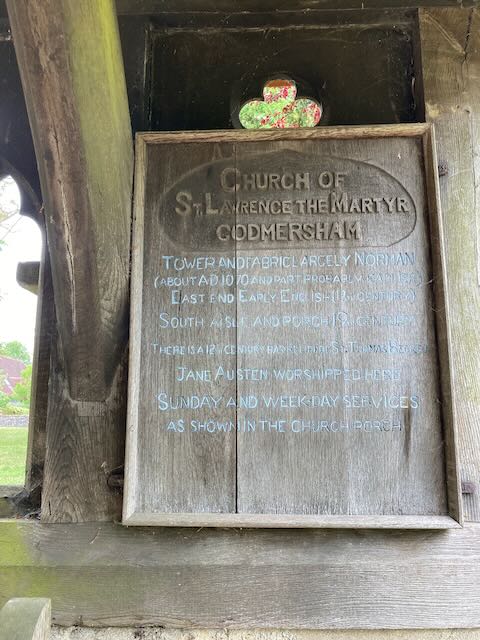 CHURCH OF
ST. LAWRENCE THE MARTYR
GODMERSHAM
TOWER AND FABRIC LARGELY NORMAN
(ABOUT A.D. 1070 AND PART PROBABLY
EAST END EARLY ENGLISH (13TH CENTURY)
SOUTH AISLE AND PORCH 19TH CENTURY
THERE IS A 12TH CENTURY BAS RELIEF OF ST. THOMAS BECKET
JANE AUSTEN WORSHIPPED HERE
SUNDAY AND WEEK-DAY SERVICES
AS SHOWN IN THE CHURCH PORCH.